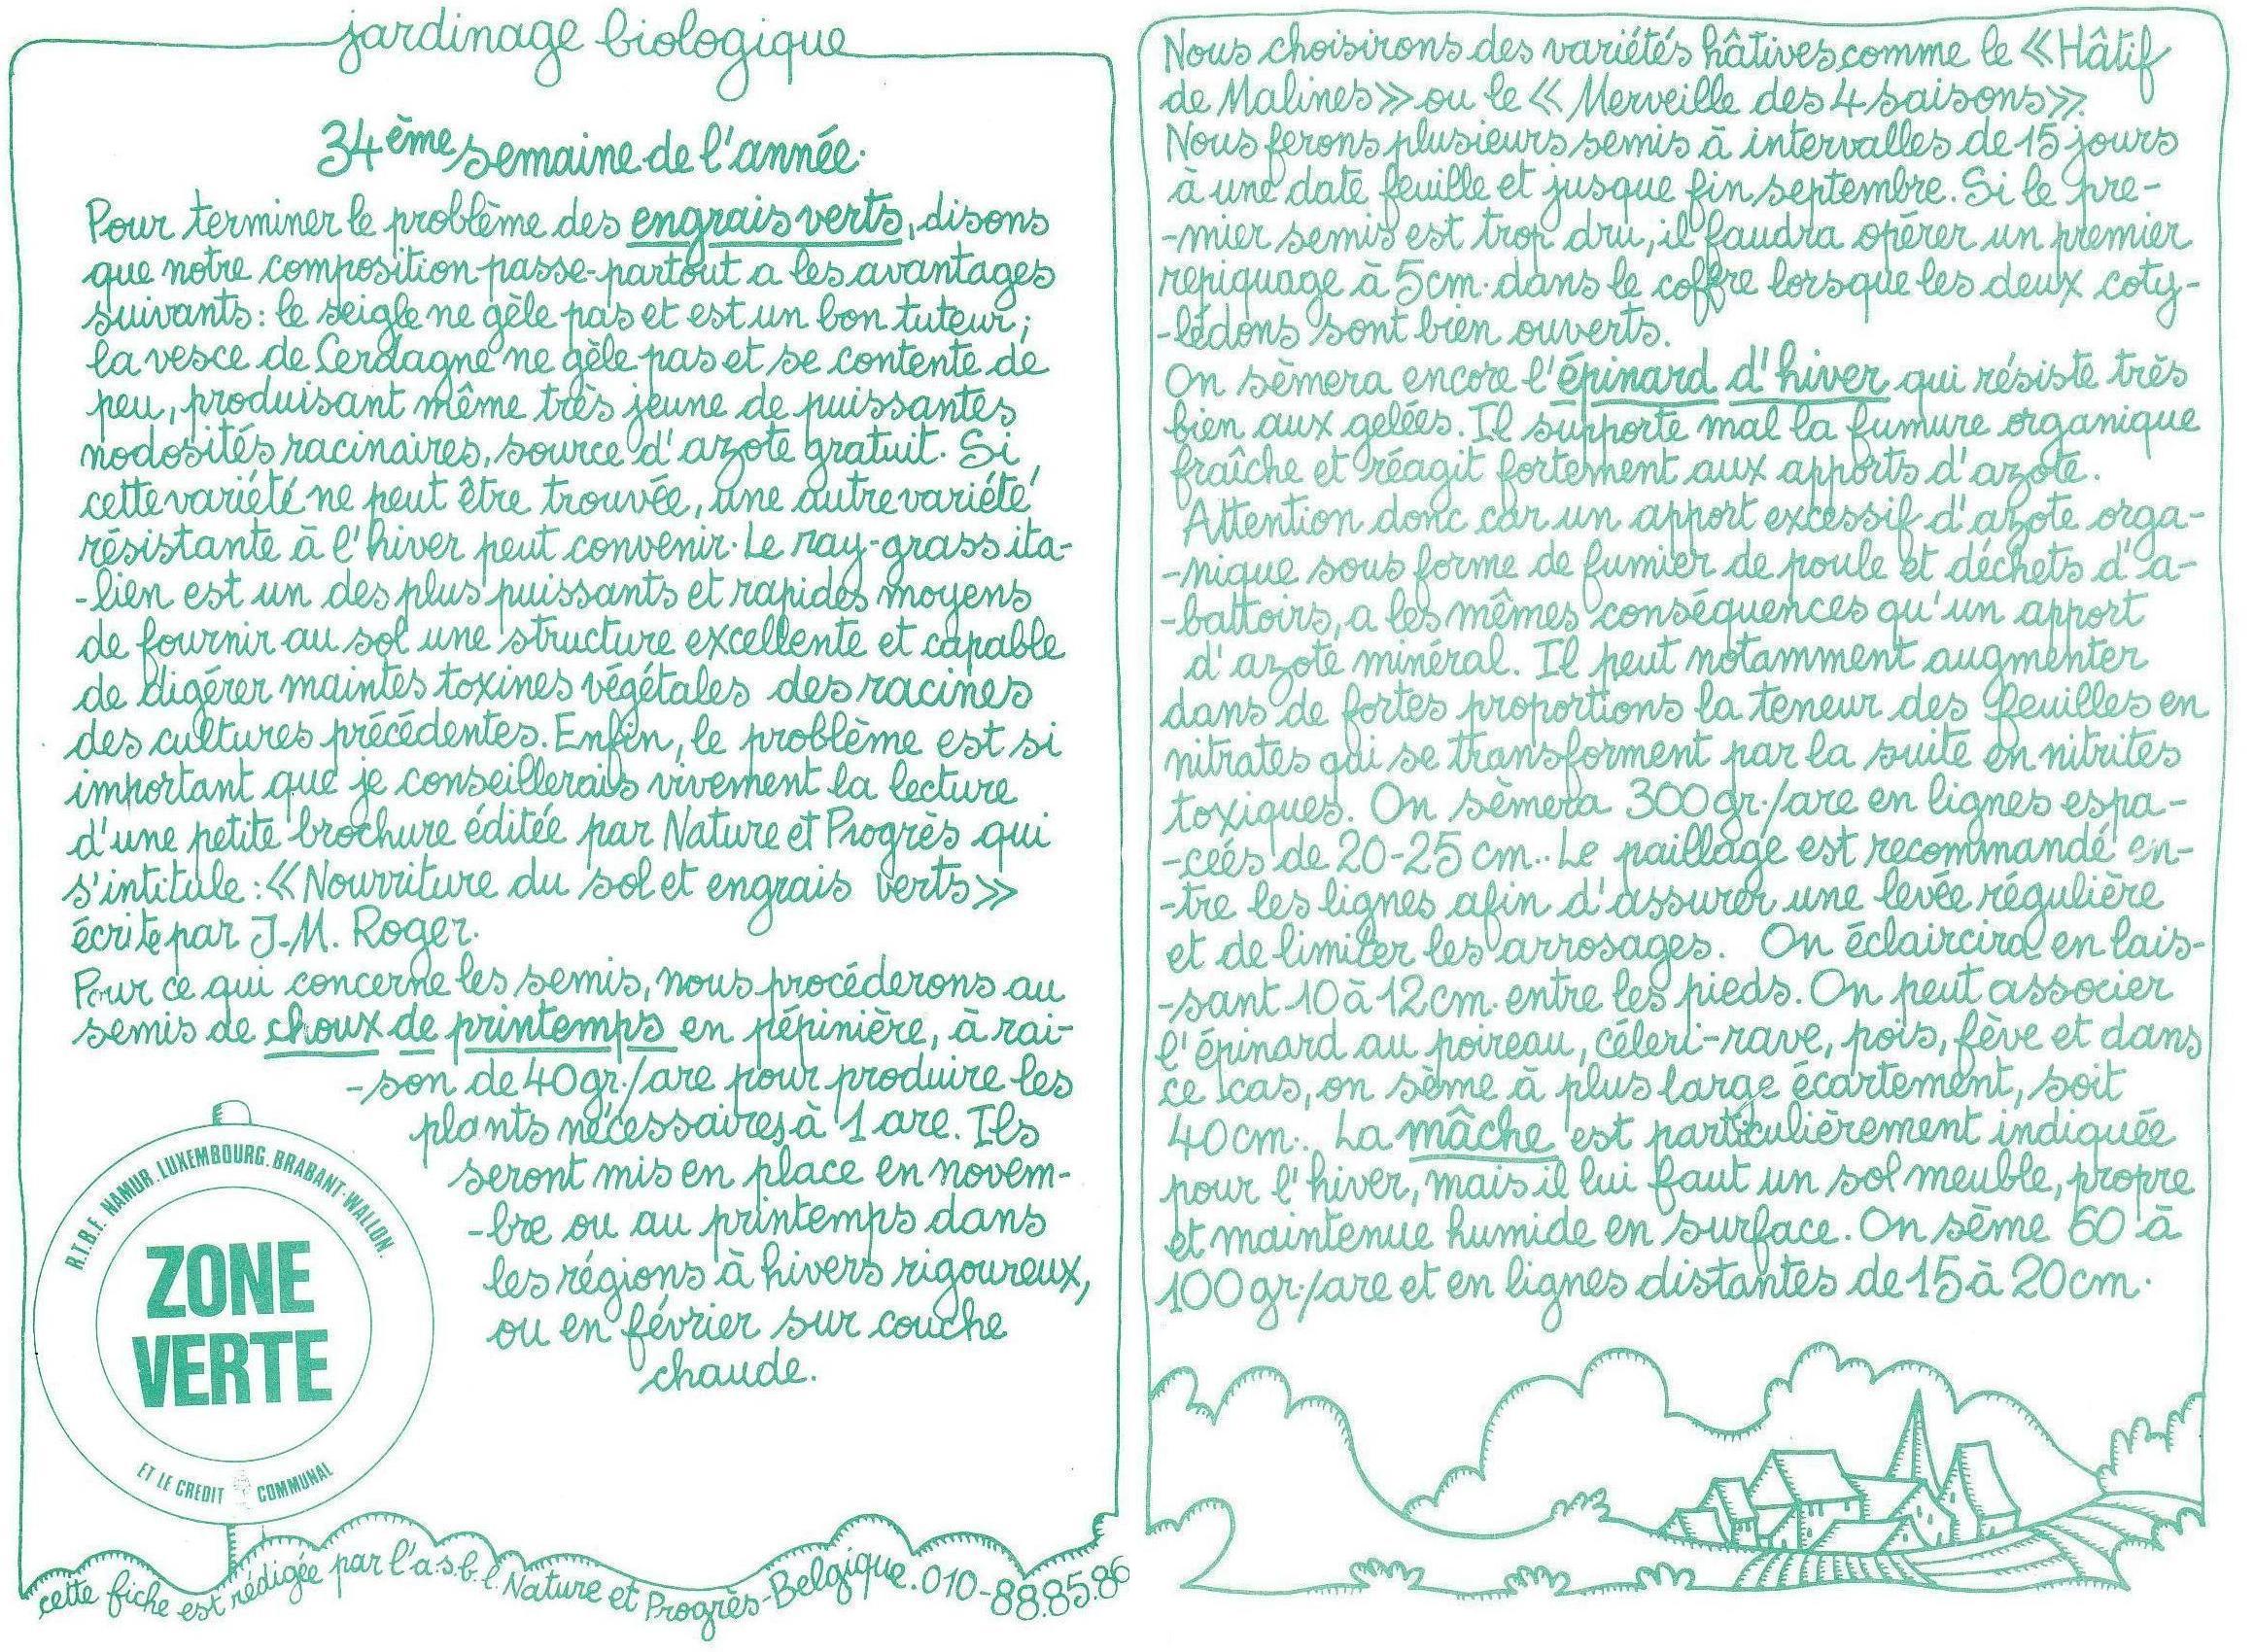 jardinage biologique
34ème semaine de l'année.
Pour terminer le problème des engrais verts, disons
que notre composition passe-partout a les avantages
suivants: le seigle ne gèle pas et est un bon tuteur;
la vesce de Cerdagne ne gèle pas et se contente de
peu, produisant même très jeune de puissantes
nodosités racinaires, source d'azote gratuit. Si
cette variété ne peut être trouvée, une autre variété
résistante à l'hiver peut convenir. Le ray-grass ita-
-lien est un des plus puissants et rapides moyens
de fournir au sol une structure excellente et capable
de digérer maintes toxines végétales des racines
des cultures précédentes. Enfin, le problème est si
important que je conseillerais vivement la lecture
d'une petite brochure éditée par Nature et Progrès qui
s'intitule: «Nourriture du sol et engrais verts»
écrite par J-M. Roger.
Pour ce qui concerne les semis, nous procéderons au
semis de choux de printemps en pépinière, à rai-
-son de 40gr./are pour produire les
plants nécessaires à 1 are. Ils
seront mis en place en novem-
-bre ou au printemps dans
les régions à hivers rigoureux,
ou en février sur couche
chaude.
R.T.B.F. NAMUR. LUXEMBOURG. BRABANT-WALLON.
ZONE
VERTE
ET LE CREDIT COMMUNAL
cette fiche est rédigée par l'a.s.b.l. Nature et Progrès-Belgique. 010-88.85.86
Nous choisirons des variétés hâtives comme le «Hâtif
de Malines» ou le «Merveille des 4 saisons».
Nous ferons plusieurs semis à intervalles de 15 jours
à une date feuille et jusque fin septembre. Si le pre-
-mier semis est trop dru, il faudra opérer un premier
repiquage à 5cm. dans le coffre lorsque les deux coty-
-lédons sont bien ouverts.
On sèmera encore l'épinard d'hiver qui résiste très
bien aux gelées. Il supporte mal la fumure organique
fraîche et réagit fortement aux apports d'azote.
Attention donc car un apport excessif d'azote orga-
-nique sous forme de fumier de poule et déchets d'a-
-battoirs, a les mêmes conséquences qu'un apport
d'azote minéral. Il peut notamment augmenter
dans de fortes proportions la teneur des feuilles en
nitrates qui se transforment par la suite en nitrites
toxiques. On sèmera 300gr./are en lignes espa-
-cées de 20-25 cm.. Le paillage est recommandé en-
-tre les lignes afin d'assurer une levée régulière
et de limiter les arrosages. On éclaircira en lais-
-sant 10 à 12cm. entre les pieds. On peut associer
l'épinard au poireau, céleri-rave, pois, fève et dans
ce cas, on sème à plus large écartement, soit
40cm.. La mâche est particulièrement indiquée
pour l'hiver, mais il lui faut un sol meuble, propre
et maintenue humide en surface. On sème 60 à
100gr./are et en lignes distantes de 15 à 20cm.